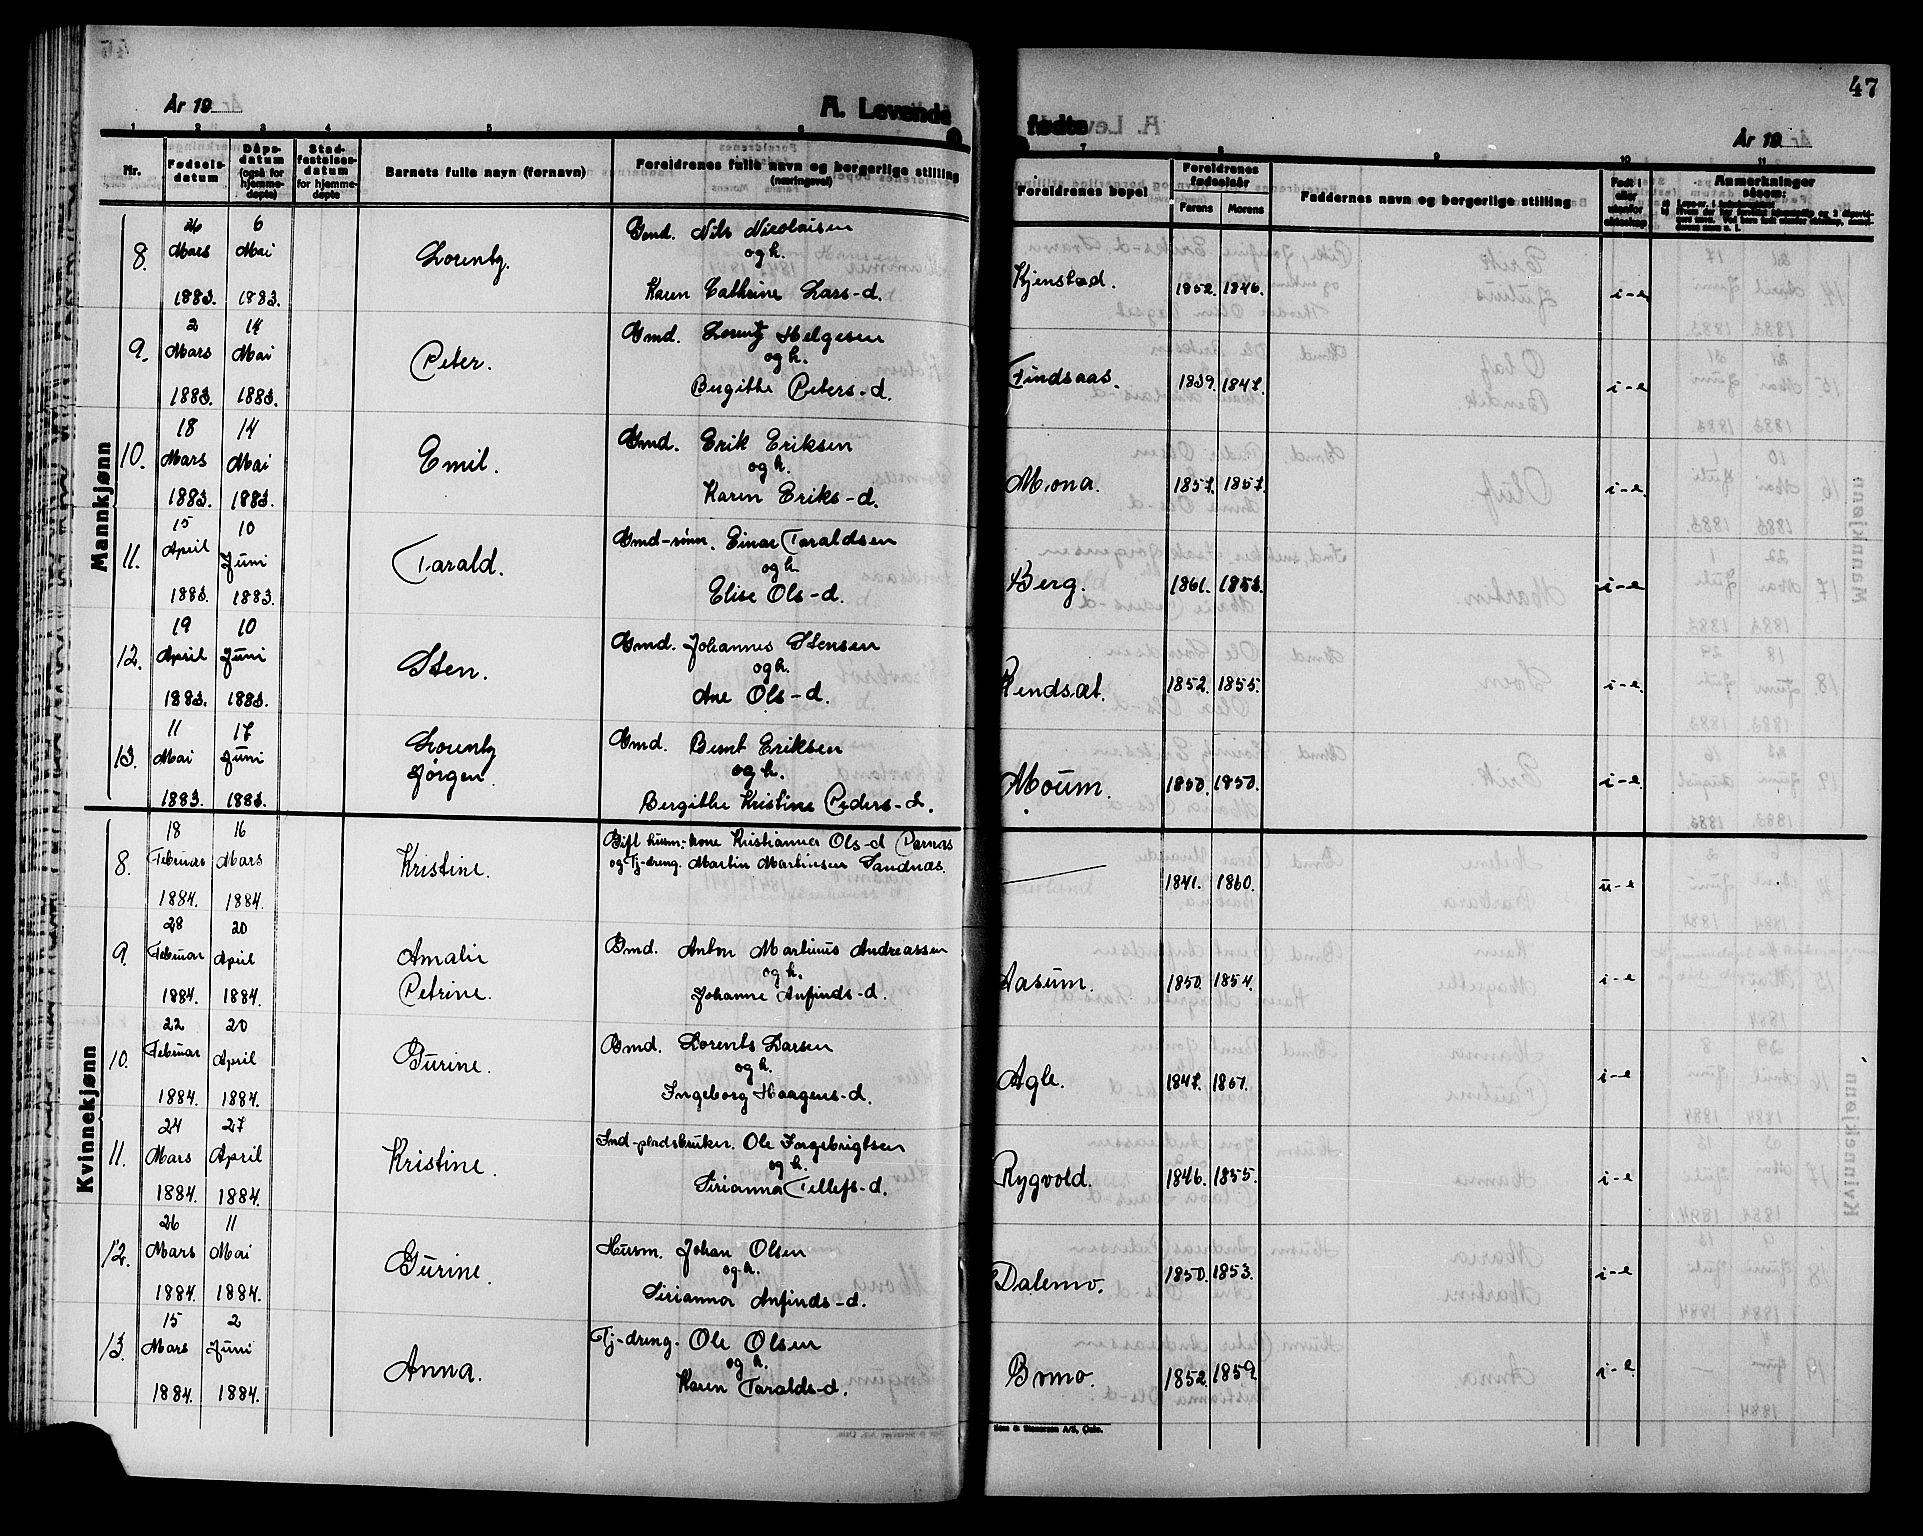 47
År 19
A. Levende
fødte
År 19
1 2 3 4 5 6 7 8 9 10 11
Nr. Fødselsdatum Dåpsdatum (også for hjemmedøpte) Stadfestelsesdatum for hjemmedøpte Barnets fulle navn (fornavn) Foreldrenes fulle navn og borgerlige stilling (næringsvei) Foreldrenes bopel Foreldrenes fødselsår Farens Morens Faddernes navn og borgerlige stilling Født i eller utenfor ekteskap Anmerkninger såsom:
Mannkjønn
8. 26 Mars 1883. 6 Mai 1883. Lorentz. Gmd. Nils Nicolaisen
og h.
Karen Cathrine Lars-d. Kjenstad. 1852. 1846. i-e
9. 2 Mars 1883. 14 Mai 1883. Peter. Gmd. Lorentz Helgesen
og h.
Bergithe Peters-d. Findsaas. 1839. 1847. i-e
10. 18 Mars 1883. 14 Mai 1883. Emil. Gmd. Erik Eriksen
og h.
Karen Eriks-d. Mona. 1857. 1857. i-e
11. 15 April 1883. 10 Juni 1883. Tarald. Gmd-sønn. Einar Taraldsen
og h.
Elise Ols-d. Berg. 1861. 1853. i-e
12. 19 April 1883. 10 Juni 1883. Sten. Gmd. Johannes Stensen
og h.
Ane Ols-d. Rendsæt. 1852. 1855. i-e
13. 11 Mai 1883. 17 Juni 1883. Lorentz
Jørgen. Gmd. Bernt Eriksen
og h.
Bergithe Kristine Peders-d. Moum. 1850. 1850. i-e
Kvinnekjønn
8. 18 Februar 1884. 16 Mars 1884. Kristine. Gift husm.-kone Kristianna Ols-d Parnas
og Tj-dreng. Martin Martinsen Sandnæs. 1841. 1860. u-e
9. 28 Februar 1884. 20 April 1884. Amalie
Petrine. Gmd. Anton Martinus Andreassen
og h.
Johanne Anfinds-d. Aasum. 1850. 1854. i-e
10. 22 Februar 1884. 20 April 1884. Gurine. Gmd. Lorents Larsen
og h.
Ingeborg Haagens-d. Agle. 1847. 1857. i-e
11. 24 Mars 1884. 27 April 1884. Kristine. Ind-pladsbruker. Ole Ingebrigtsen
og h.
Sirianna Tellefs-d. Rygvold. 1846. 1855. i-e
12. 26 Mars 1884. 11 Mai 1884. Gurine. Husm. Johan Olsen
og h.
Sirianna Anfinds-d. Dalemo. 1850. 1853. i-e
13. 15 Mars 1884. 2 Juni 1884. Anna. Tj-dreng. Ole Olsen
og h.
Karen Taralds-d. Bomo. 1852. 1859. i-e
Sem & Stenersen A/S, Oslo.